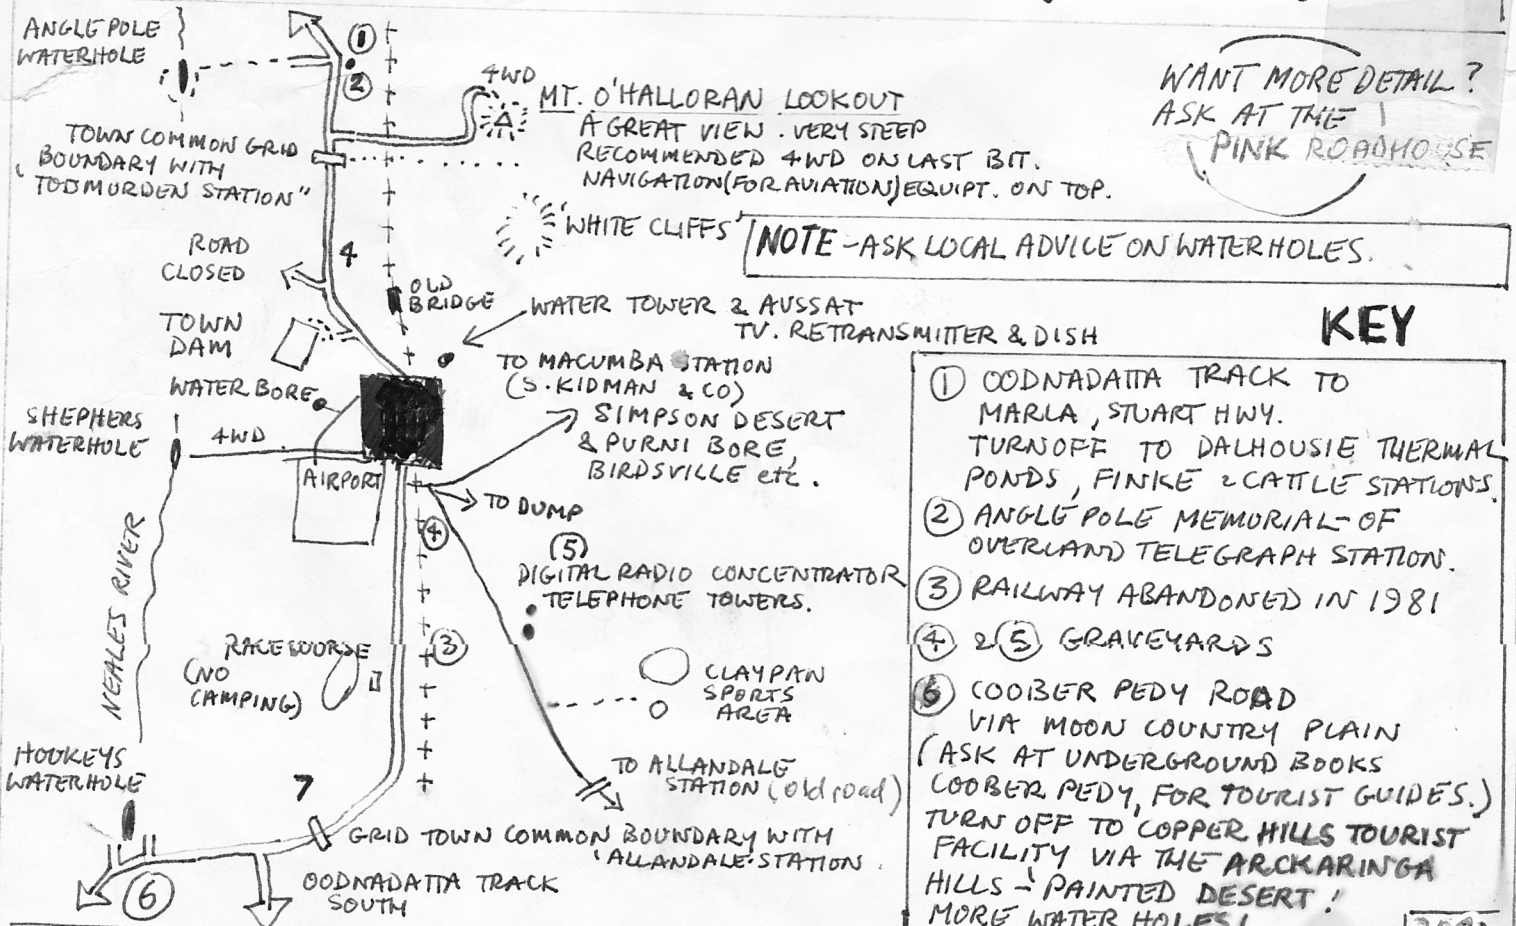 ANGLE POLE
WATERHOLE
1
2
4WD
MT. O'HALLORAN LOOKOUT
A GREAT VIEW. VERY STEEP
RECOMMENDED 4WD ON LAST BIT.
NAVIGATION (FOR AVIATION) EQUIPT. ON TOP.
WANT MORE DETAIL?
ASK AT THE
PINK ROADHOUSE
TOWN COMMON GRID
BOUNDARY WITH
"TODMORDEN STATION"
'WHITE CLIFFS'
NOTE - ASK LOCAL ADVICE ON WATERHOLES.
ROAD
CLOSED
4
OLD
BRIDGE
WATER TOWER & AUSSAT
TV. RETRANSMITTER & DISH
TOWN
DAM
WATER BORE
TO MACUMBA STATION
(S. KIDMAN & CO)
SIMPSON DESERT
& PURNI BORE,
BIRDSVILLE etc.
SHEPHERS
WATERHOLE
4WD
AIRPORT
TO DUMP
4
5
DIGITAL RADIO CONCENTRATOR
TELEPHONE TOWERS.
NEALES RIVER
RACECOURSE
(NO
CAMPING)
3
CLAYPAN
SPORTS
AREA
HOOKEYS
WATERHOLE
7
TO ALLANDALE
STATION (old road)
GRID TOWN COMMON BOUNDARY WITH
'ALLANDALE STATION
6
OODNADATTA TRACK
SOUTH
KEY
1 OODNADATTA TRACK TO
MARLA, STUART HWY.
TURNOFF TO DALHOUSIE THERMAL
PONDS, FINKE & CATTLE STATIONS.
2 ANGLE POLE MEMORIAL - OF
OVERLAND TELEGRAPH STATION.
3 RAILWAY ABANDONED IN 1981
4 & 5 GRAVEYARDS
6 COOBER PEDY ROAD
VIA MOON COUNTRY PLAIN
(ASK AT UNDERGROUND BOOKS
COOBER PEDY, FOR TOURIST GUIDES.)
TURN OFF TO COPPER HILLS TOURIST
FACILITY VIA THE ARCKARINGA
HILLS - 'PAINTED DESERT!
MORE WATER HOLES!